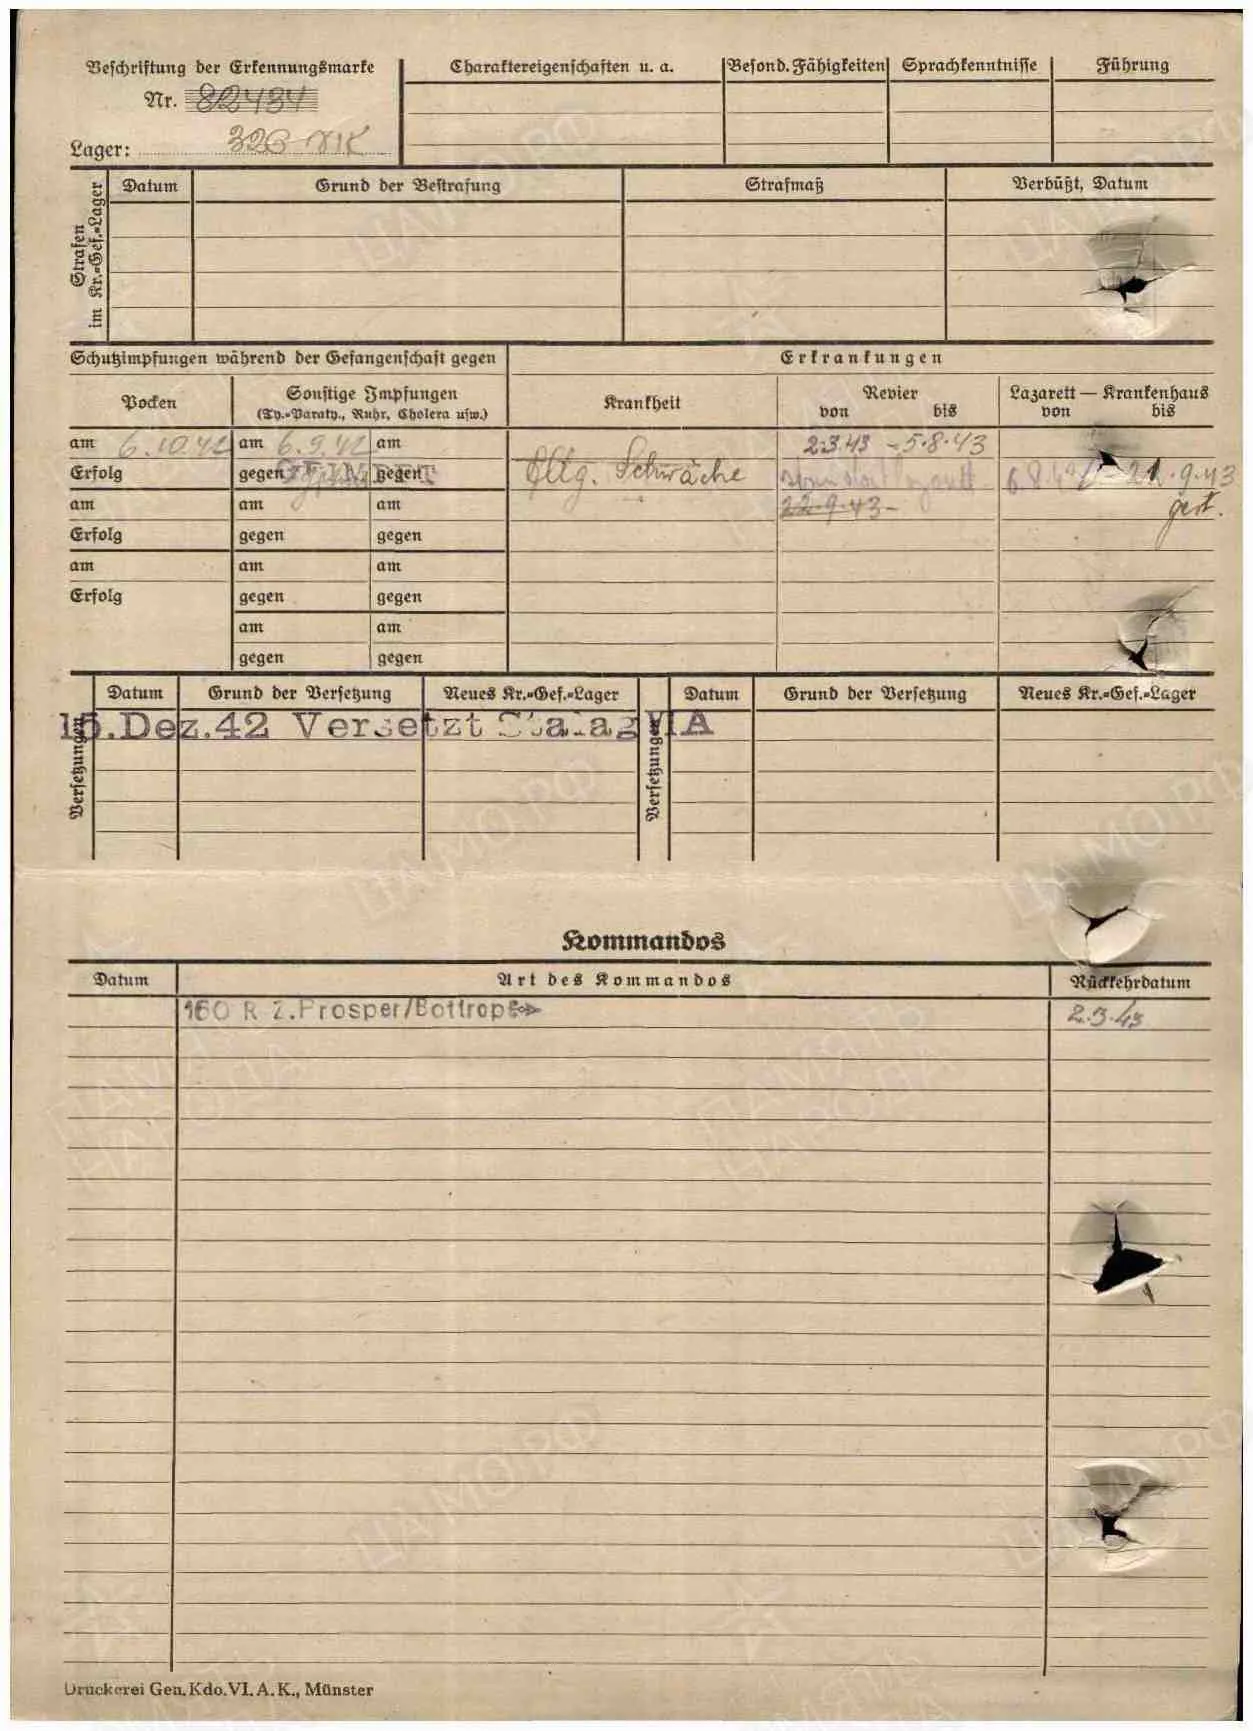 Beschriftung der Erkennungsmarke
Nr. 82434
Lager: 326 VIK
Charaktereigenschaften u. a.
Besond. Fähigkeiten
Sprachkenntnisse
Führung
Strafen im Kr.-Gef.-Lager
Datum
Grund der Bestrafung
Strafmaß
Verbüßt, Datum
Schutzimpfungen während der Gefangenschaft gegen
Erkrankungen
Pocken
Sonstige Impfungen
(Ty.-Paraty., Ruhr, Cholera usw.)
Krankheit
Revier
von bis
Lazarett — Krankenhaus
von bis
am 6.10.42 am 6.9.42 am
2.3.43 - 5.8.43
Erfolg gegen gegen
Allg. Schwäche
22.9.43
gest.
am am am
22.9.43-
Erfolg gegen gegen
am am am
Erfolg gegen gegen
am am
gegen gegen
Versetzungen
Datum
Grund der Versetzung
Neues Kr.-Gef.-Lager
Versetzungen
Datum
Grund der Versetzung
Neues Kr.-Gef.-Lager
15.Dez.42 Versetzt Stalag VI A
Kommandos
Datum
Art des Kommandos
Rückkehrdatum
160 R Z.Prosper/Bottrop
2.3.43
Druckerei Gen.Kdo.VI.A.K., Münster
ЦАМО РФ
ПАМЯТЬ
НАРОДА